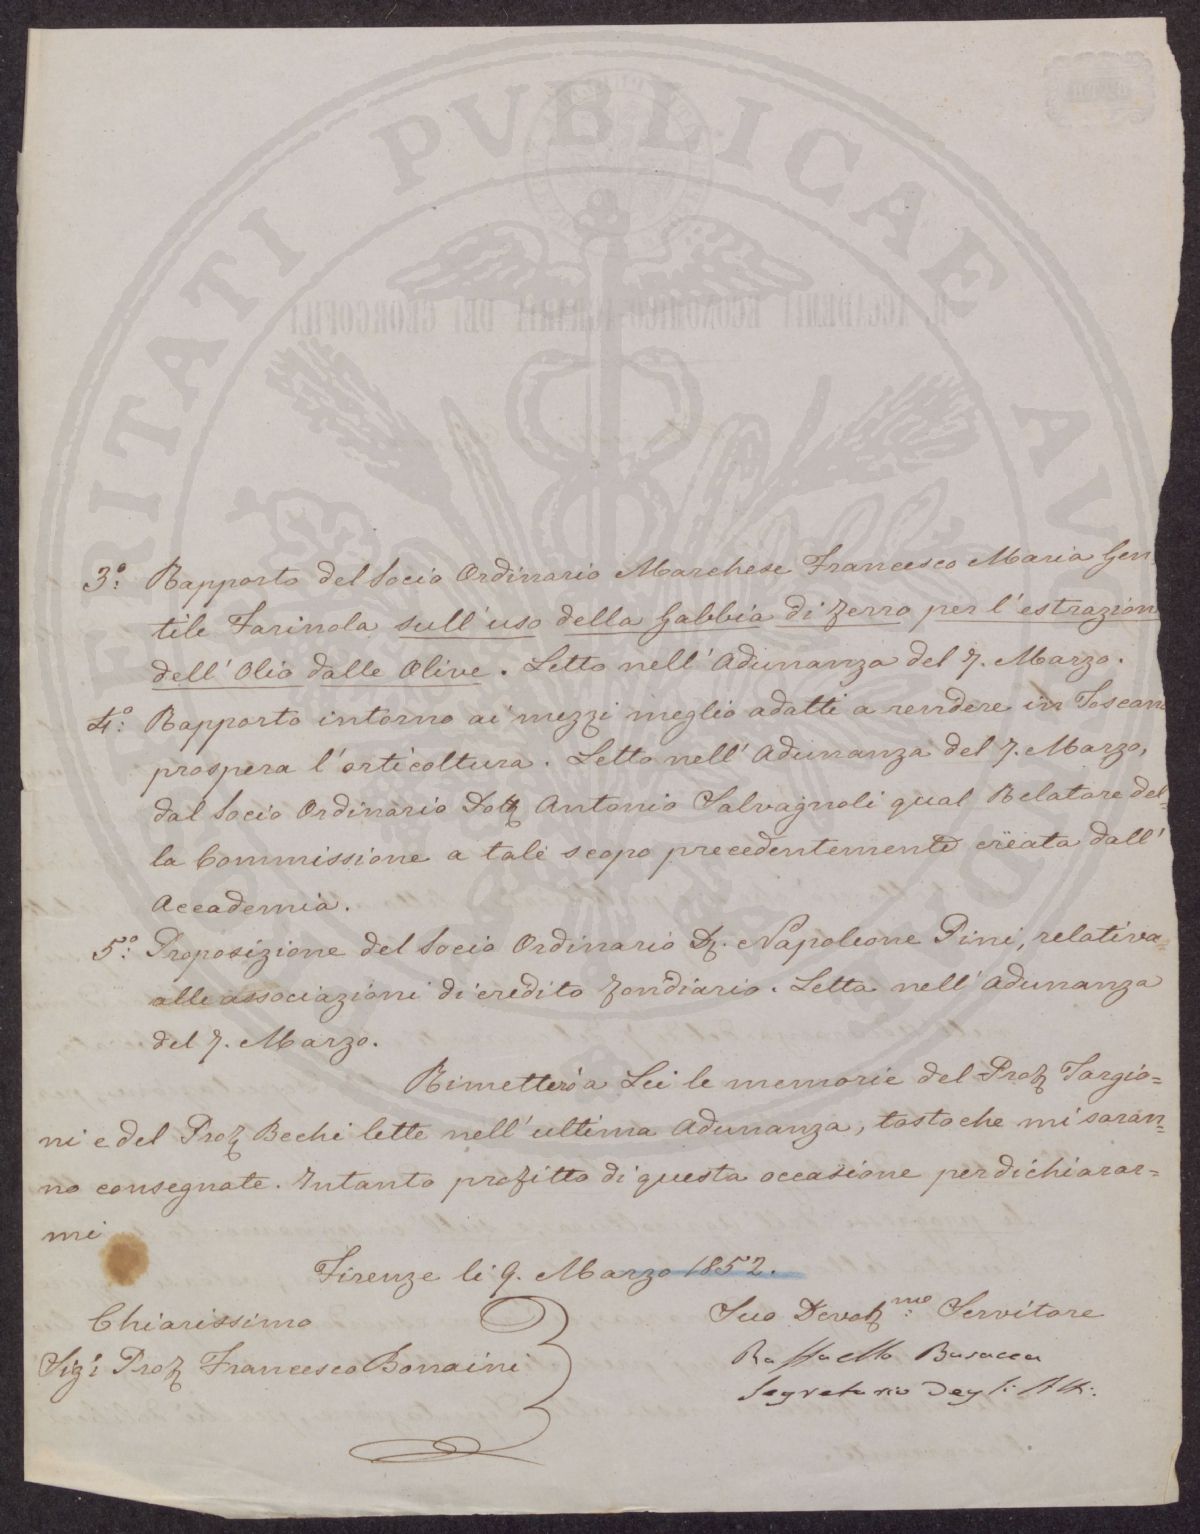 PROSPERITATI PVBLICAE AVGENDAE
R. ACCADEMIA ECONOMICO-AGRARIA DEI GEORGOFILI
3.° Rapporto del Socio Ordinario Marchese Francesco Maria Gen
tile Farinola sull'uso della Gabbia di ferro per l'estrazion
dell'Olio dalle Olive. Letto nell'Adunanza del 7. Marzo.
4.° Rapporto intorno ai mezzi meglio adatti a rendere in Toscana
prospera l'orticoltura. Letto nell'Adunanza del 7. Marzo,
dal Socio Ordinario Dott Antonio Salvagnoli qual Relatore del=
la Commissione a tale scopo precedentemente creata dall'
Accademia.
5.° Proposizione del Socio Ordinario D. Napoleone Pini, relativa
alle associazioni di credito fondiario. Letta nell'Adunanza
del 7. Marzo.
Rimetterò a Lei le memorie del Prof Targio=
ni e del Prof Bechi lette nell'ultima Adunanza, tosto che mi saran=
no consegnate. Intanto profitto di questa occasione per dichiarar=
mi
Firenze li 9. Marzo 1852.
Chiarissimo
Sig: Prof Francesco Bonaini
Suo Devot:me Servitore
Raffaello Busacca
Segretario Degli Atti: